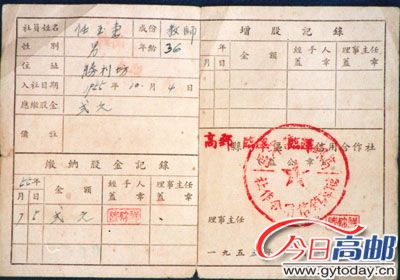 社員姓名 任玉書 成份 教師
性別 男 年齡 36
住址 勝利坊
入社日期 1955年10月4日
應繳股金 弍元
備註
繳納股金記錄
55年
月 日 金額 經手人 理事主任
7 5 弍元
增股記錄
年
月 日 金額 經手人 理事主任
高郵縣臨澤區臨澤信用合作社
蓋公章
理事主任
一九五五
今日高邮
www.gytoday.cn